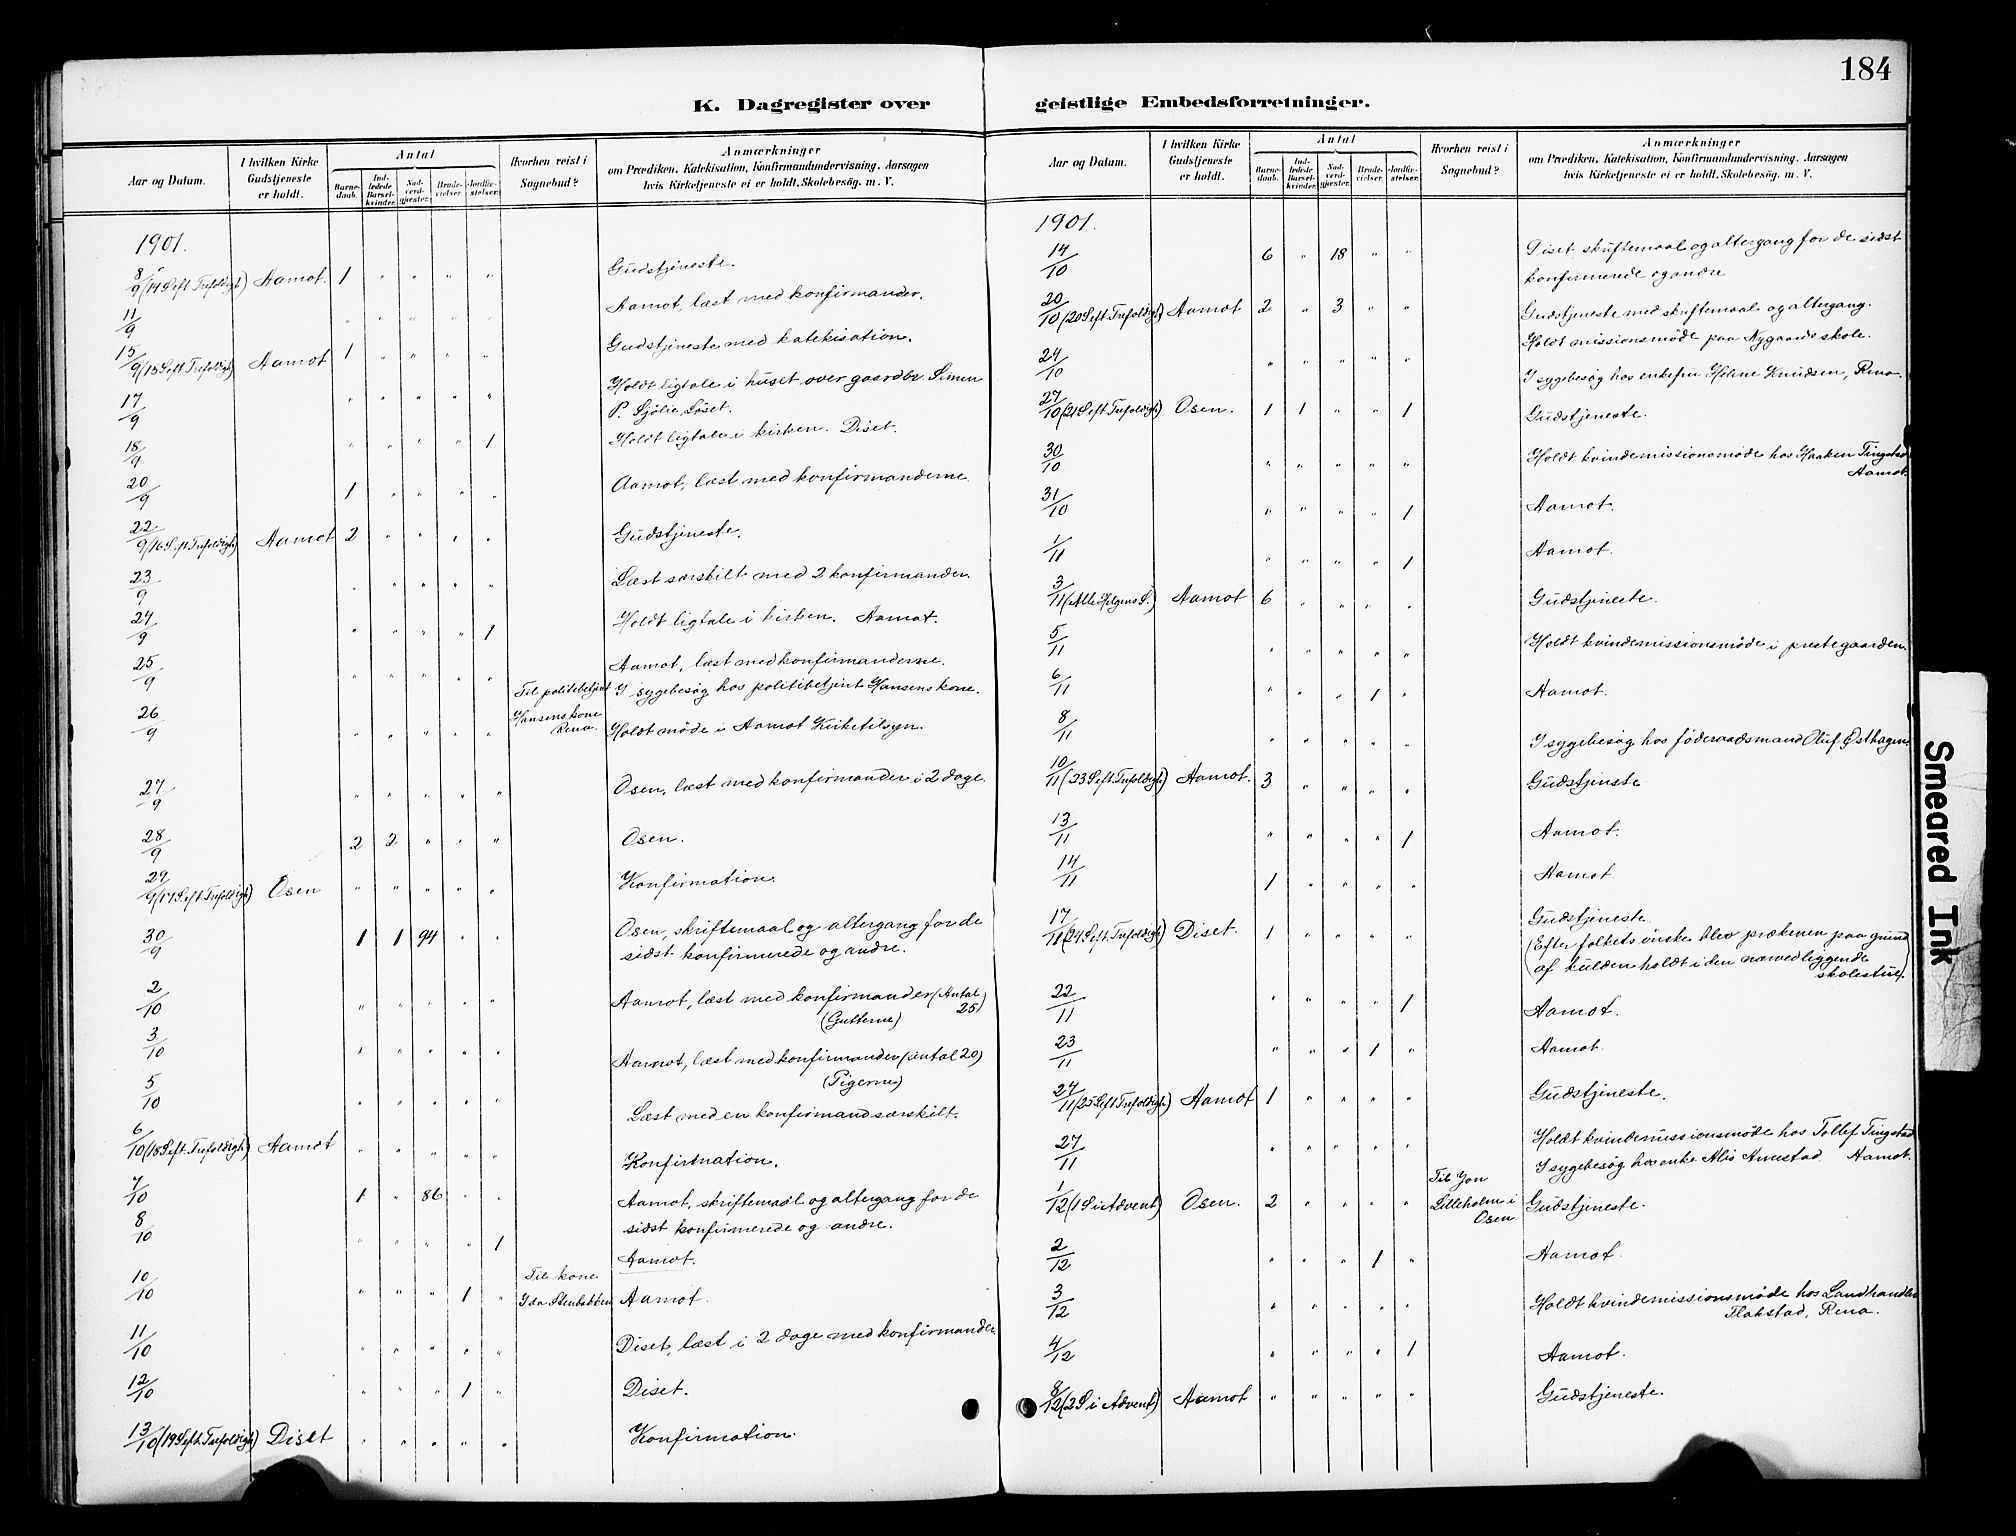 184
K. Dagregister over
Aar og Datum.
I hvilken Kirke Gudstjeneste er holdt.
Antal
Barne-daab.
Ind-ledede Barsel-kvinder.
Nad-verd-gjæster.
Brude-vielser.
Jordfæ-stelser.
Hvorhen reist i Sognebud?
Anmærkninger
om Prædiken, Katekisation, Konfirmandundervisning, Aarsagen
hvis Kirketjeneste ei er holdt, Skolebesøg. m. V.
1901.
8/9 (14 S. eft. Trefoldigh) Aamot. 1 " " " " Gudstjeneste.
11/9 " " " " " Aamot, læst med konfirmander.
15/9 (15 S. eft. Trefoldigh) Aamot 1 " " " " Gudstjeneste med katekisation.
17/9 " " " " " Holdt ligtale i huset over gaardbr. Simen
P. Sjölie, Löset.
18/9 " " " " 1 Holdt ligtale i kirken. Diset.
20/9 1 " " " " Aamot, læst med konfirmanderne
22/9 (16 S. eft Trefoldigh) Aamot 2 " " " " Gudstjeneste.
23/9 " " " " " Læst særskilt med 2 konfirmander.
24/9 " " " " 1 Holdt ligtale i kirken. Aamot.
25/9 " " " " " Aamot, læst med konfirmanderne.
Til politibetjent I sygebesøg hos politibetjent Hansens kone.
Hansens kone
Rena.
26/9 " " " " " Holdt møde i Aamot Kirketilsyn.
27/9 " " " " " Osen, læst med konfirmander i 2 dage.
28/9 2 2 " " " Osen.
29/9 (17 S. eft. Trefoldigh) Osen " " " " " Konfirmation.
30/9 1 1 94 " " Osen, skriftemaal og altergang for de
sidst konfirmerede og andre.
2/10 " " " " " Aamot, læst med konfirmander (Antal
25)
(Gutterne)
3/10 " " " " " Aamot, læst med konfirmander (antal 20)
(Pigerne)
5/10 " " " " " Læst med en konfirmand særskilt.
6/10 (18 S. eft. Trefoldigh.) Aamot " " " " " Konfirmation.
7/10 1 " 86 " " Aamot, skriftemaal og altergang for de
sidst konfirmerede og andre.
8/10 " " " " 1 Aamot.
10/10 " " " 1 " Til kone
Ida Stenbakken Aamot.
11/10 " " " " " Diset, læst i 2 dage med konfirmander
12/10 " " " 1 " Diset.
13/10 (19 S. eft. Trefoldigh) Diset " " " " " Konfirmation.
geistlige Embedsforretninger.
Aar og Datum.
I hvilken Kirke Gudstjeneste er holdt.
Antal
Barne-daab.
Ind-ledede Barsel-kvinder.
Nad-verd-gjæster.
Brude-vielser.
Jordfæ-stelser.
Hvorhen reist i Sognebud?
Anmærkninger
om Prædiken, Katekisation, Konfirmandundervisning, Aarsagen
hvis Kirketjeneste ei er holdt, Skolebesøg. m. V.
1901.
14/10 6 " 18 " " Diset, skriftemaal og altergang for de sidst
konfirmerede og andre
20/10 (20 S. eft. Trefoldigh) Aamot 2 " 3 " " Gudstjeneste med skriftemaal og altergang.
24/10 " " " " " Holdt missionsmöde paa Nygaards skole.
I sygebesøg hos enkefru Helene Knudsen, Rena.
27/10 (21 S. eft. Trefoldigh) Osen. 1 1 " " 1 Gudstjeneste.
30/10 " " " " " Holdt kvindemissionsmøde hos Haaken Tingstad
Aamot.
31/10 " " " " 1 Aamot.
1/11 " " " " 1 Aamot.
3/11 (Alle Helgens S.) Aamot 6 " " " " Gudstjeneste.
5/11 " " " " " Holdt kvindemissionsmøde i prestegaarden.
6/11 " " " 1 " Aamot.
8/11 " " " " " I sygebesøg hos föderaadsmand Oluf Østhagen.
10/11 (23 S. eft. Trefoldigh.) Aamot. 3 " " " " Gudstjenste
13/11 " " " " 1 Aamot.
14/11 1 " " " " Aamot
17/11 (24 S. eft. Trefoldigh) Diset. 1 " " " " Gudstjeneste.
(Efter folkets ønske blev prækenen paa grund
af kulden holdt i den nærvedliggende
skolestue).
22/11 " " " " 1 Aamot.
23/11 " " " 1 " Aamot.
24/11 (25 S. eft Trefoldigh.) Aamot 1 " " " " Gudstjeneste.
27/11 " " " " " Holdt kvindemissionsmøde hos Tollef Tingstad
I sygebesøg hos enke Alis Arnestad Aamot.
Til Jon
Lilleholm i
Osen
1/12 (1 S i Advent) Osen. 2 " " " " Gudstjeneste.
2/12 " " " 1 " Aamot.
3/12 " " " " " Holdt kvindemissionsmøde hos Landhandler
Flakstad, Rena.
4/12 " " " " 1 Aamot.
8/12 (2 S i Advent) Aamot " " " " " Gudstjeneste.
Smeared Ink